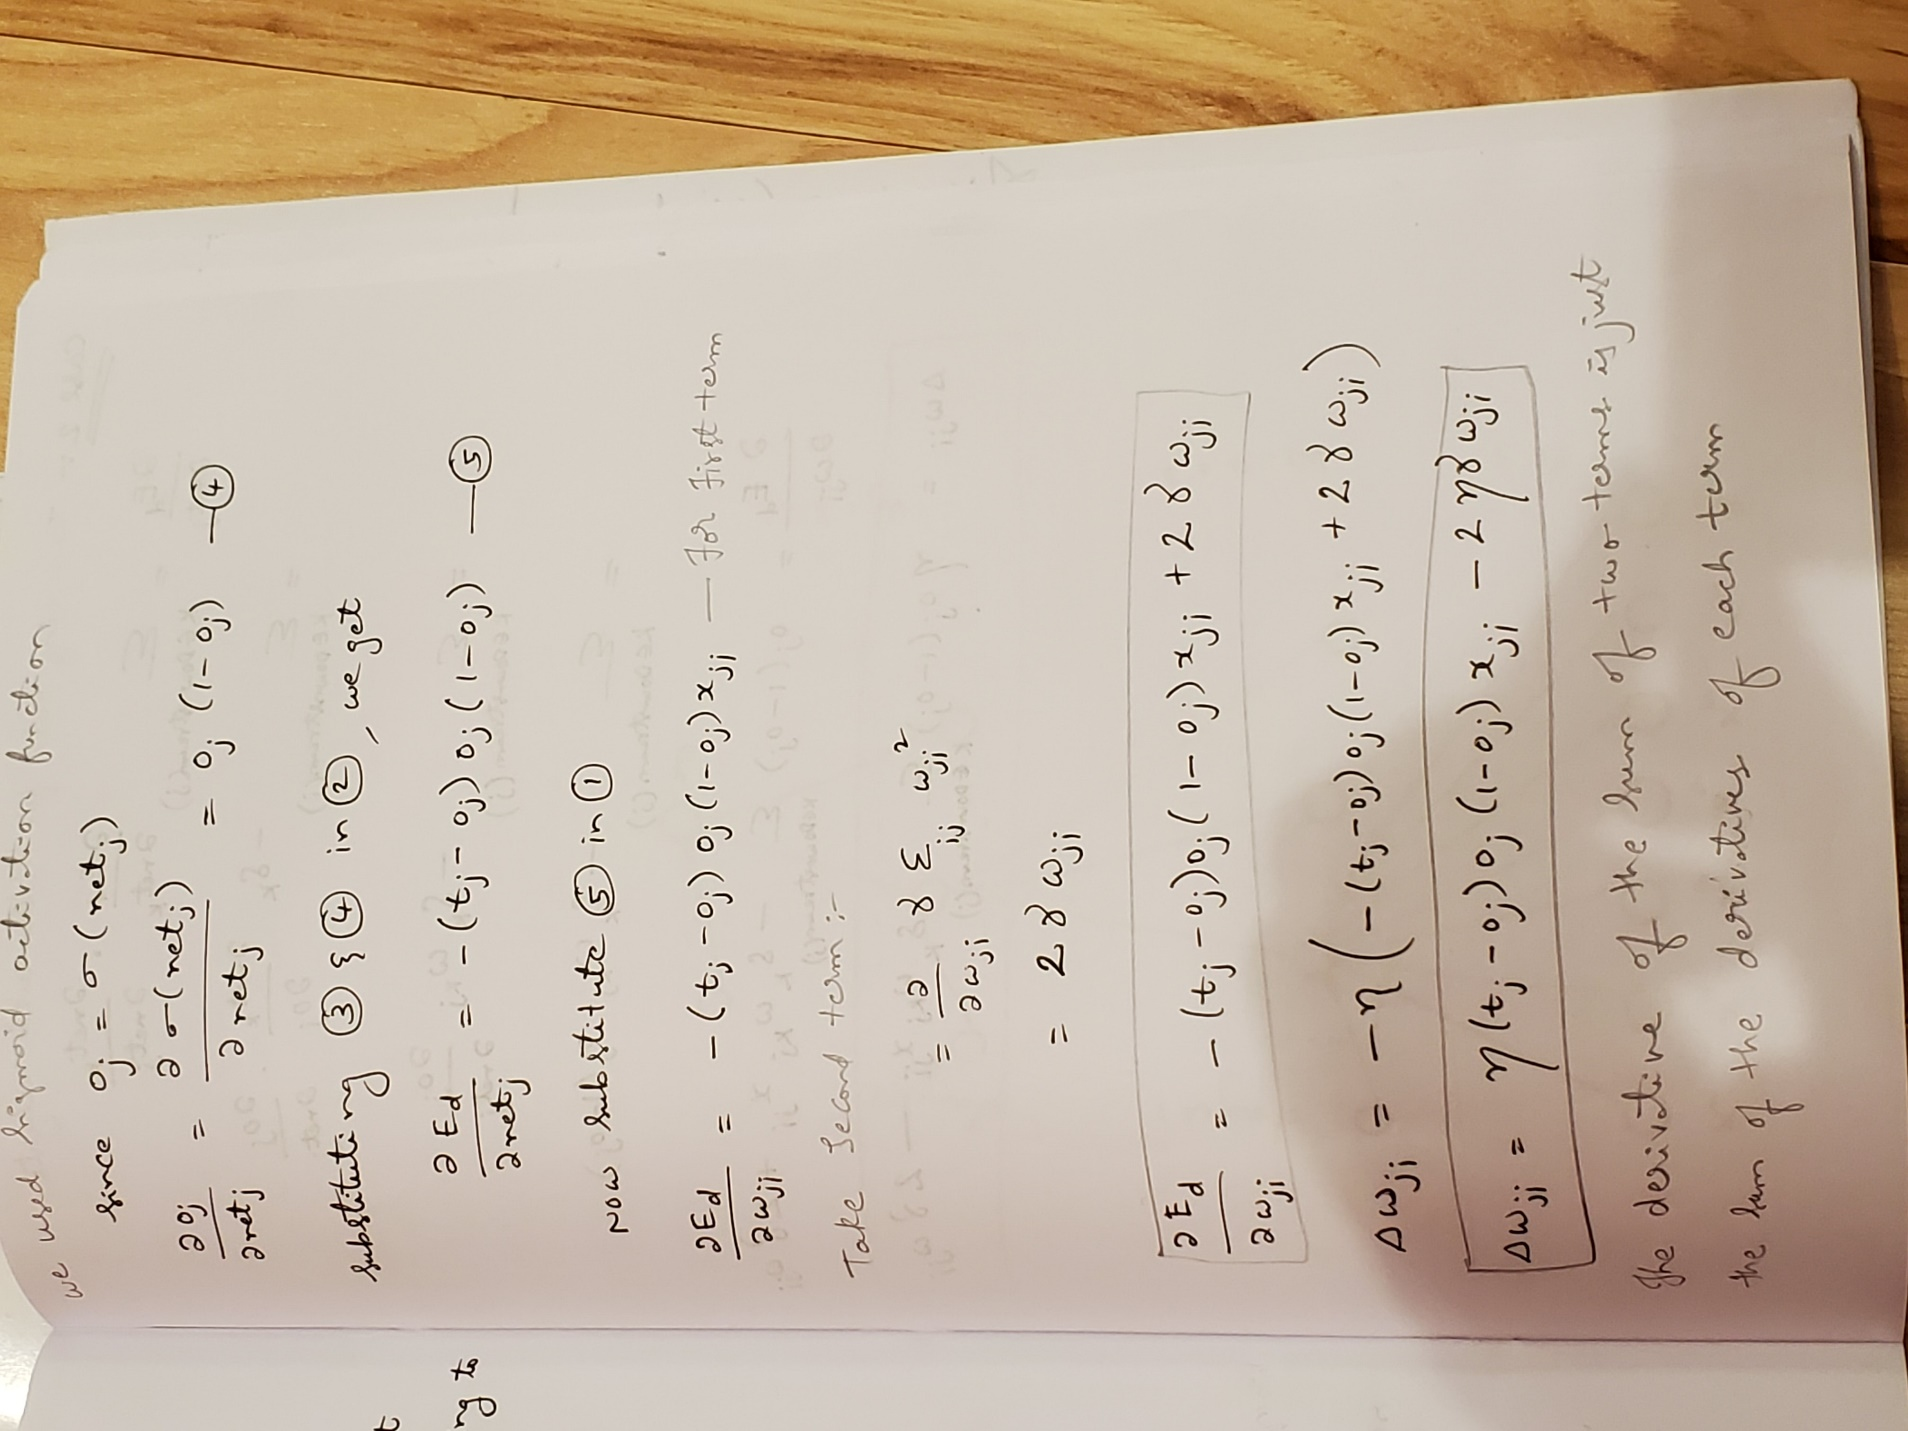 we used sigmoid activation function
since oj = σ(netj)
∂oj/∂netj = ∂σ(netj)/∂netj = oj (1-oj) — ④
substituting ③ & ④ in ②, we get
∂Ed/∂netj = -(tj - oj) oj (1-oj) — ⑤
Now substitute ⑤ in ①
∂Ed/∂wji = -(tj - oj) oj (1-oj) xji — For First term
Take second term :-
= ∂/∂wji γ Σij wji²
= 2γ wji
∂Ed/∂wji = -(tj - oj) oj (1-oj) xji + 2γ wji
Δwji = -η (-(tj - oj) oj (1-oj) xji + 2γ wji)
Δwji = η (tj - oj) oj (1-oj) xji - 2ηγ wji
The derivative of the sum of two terms is just
the sum of the derivatives of each term
ng to